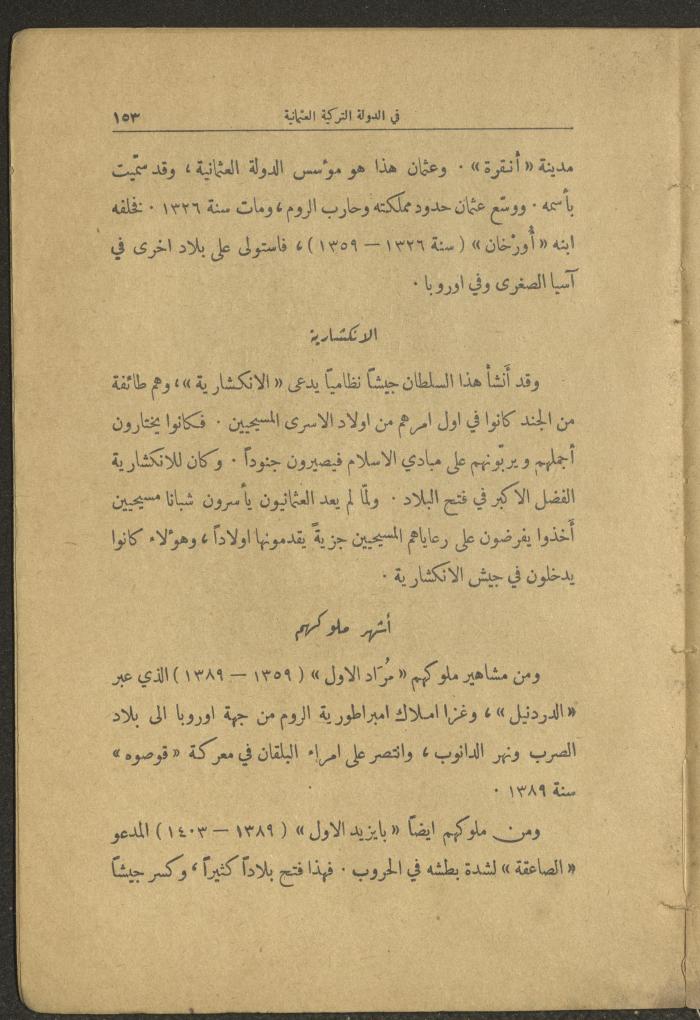 في الدولة التركية العثمانية ١٥٣
مدينة « أَنقرة » . وعثمان هذا هو مؤسس الدولة العثمانية ، وقد سمّيت
بأسمه . ووسّع عثمان حدود مملكته وحارب الروم ، ومات سنة ١٣٢٦ . فخلفه
ابنه « أُورْخان » ( سنة ١٣٢٦ — ١٣٥٩ ) ، فاستولى على بلاد اخرى في
آسيا الصغرى وفي اوروبا .
الانكشارية
وقد أَنشأ هذا السلطان جيشاً نظاميّاً يدعى « الانكشارية » ، وهم طائفة
من الجند كانوا في اول امرهم من اولاد الاسرى المسيحيين . فكانوا يختارون
أجملهم ويربّونهم على مبادي الاسلام فيصيرون جنوداً . وكان للانكشارية
الفضل الاكبر في فتح البلاد . ولمّا لم يعد العثمانيون يأسرون شبانا مسيحيين
أَخذوا يفرضون على رعاياهم المسيحيين جزيةً يقدمونها اولاداً ، وهؤلاء كانوا
يدخلون في جيش الانكشارية .
أشهر ملوكهم
ومن مشاهير ملوكهم « مُرَاد الاول » ( ١٣٥٩ — ١٣٨٩ ) الذي عبر
« الدردنيل » ، وغزا املاك امبراطورية الروم من جهة اوروبا الى بلاد
الصرب ونهر الدانوب ، وانتصر على امراء البلقان في معركة « قوصوه »
سنة ١٣٨٩ .
ومن ملوكهم ايضاً « بايزيد الاول » ( ١٣٨٩ — ١٤٠٣ ) المدعو
« الصاعقة » لشدة بطشه في الحروب . فهذا فتح بلاداً كثيراً ، وكسر جيشاً